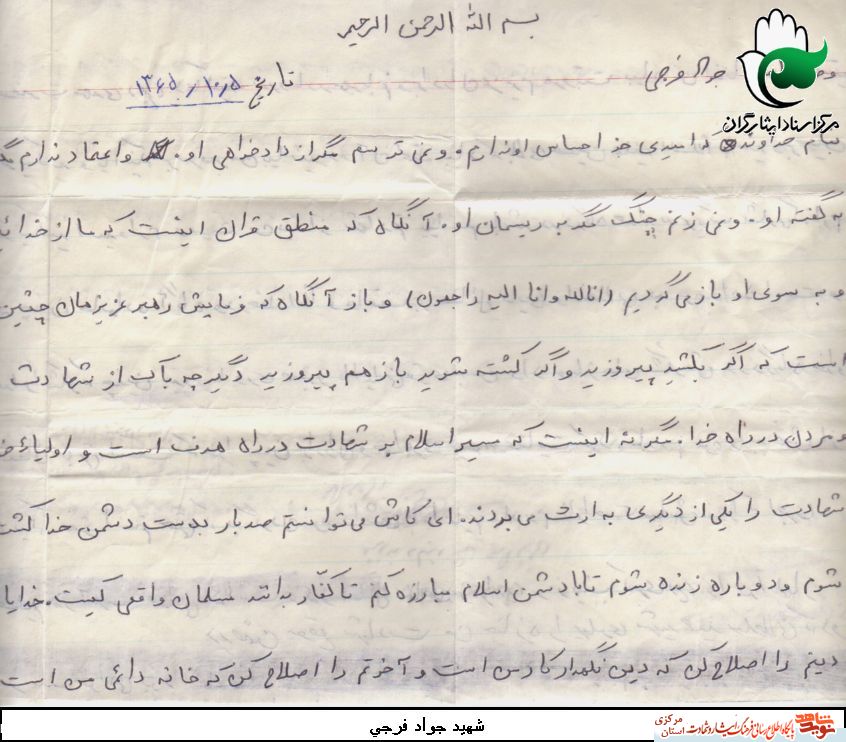 بسم الله الرحمن الرحیم
جواد فرجی
تاریخ ۱۳۶۵/۱۰/۵
مرکز اسناد ایثارگران
بنام خداوندی که امیدی جز احساس او ندارم. و نمی ترسم مگر از دادخواهی او. و اعتماد ندارم مگر
به گفته او. و نمی زنم چنگ مگر به ریسمان او. آنگاه که منطق قران اینست که ما از خدائیم
و به سوی او باز می گردیم (انالله وانا الیه راجعون) و باز آنگاه که فرمایش رهبر عزیزمان چنین
است که اگر بکشید پیروزید و اگر کشته شوید باز هم پیروزید دگیر چه باک از شهادت
و مردن در راه خدا. مگر نه اینست که سیر اسلام بر شهادت در راه هدف است و اولیاء خدا
شهادت را یکی از دیگری به ارث می بردند. ای کاش می توانستم صد بار بدست دشمن خدا کشته
شوم و دوباره زنده شوم تا با دشمن اسلام مبارزه کنم تا کفّار بدانند مسلمان واقعی کیست. خدایا
دینم را اصلاح کن که دین نگهدار کار من است و آخرتم را اصلاح کن که خانه دائمی من است
شهيد جواد فرجي
نوید شاهد
پایگاه اطلاع رسانی فرهنگ ایثار و شهادت
استان مرکزی